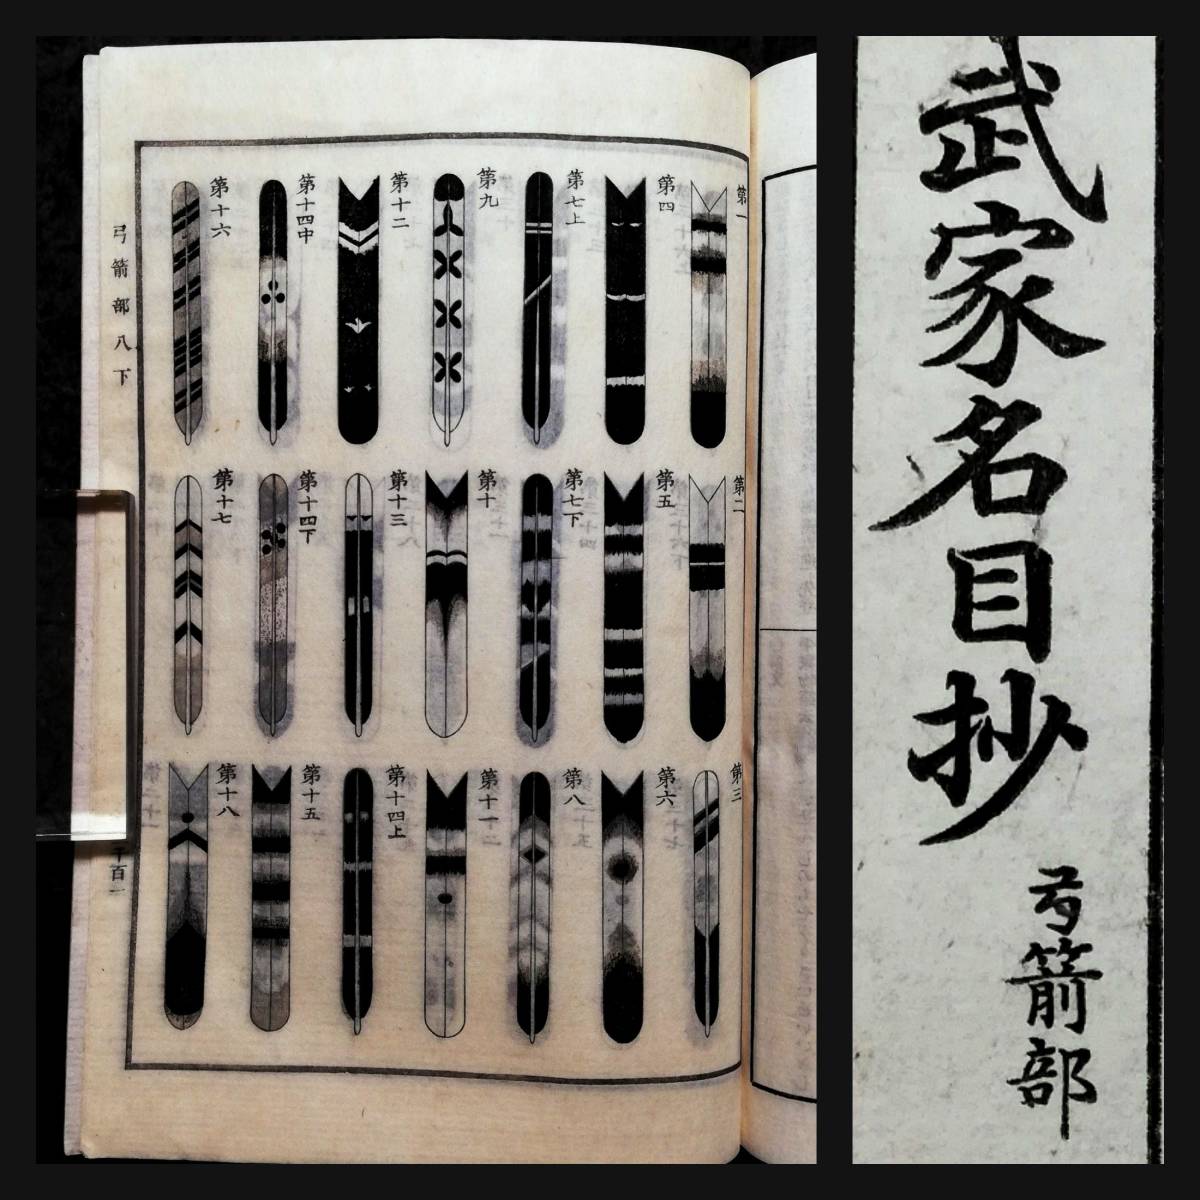 武家名目抄
弓箭部
第一
第四
第七上
第九
第十二
第十四中
第十六
第二
第五
第七下
第十
第十三
第十四下
第十七
第三
第六
第八
第十一
第十四上
第十五
第十八
弓箭部八下
千百一